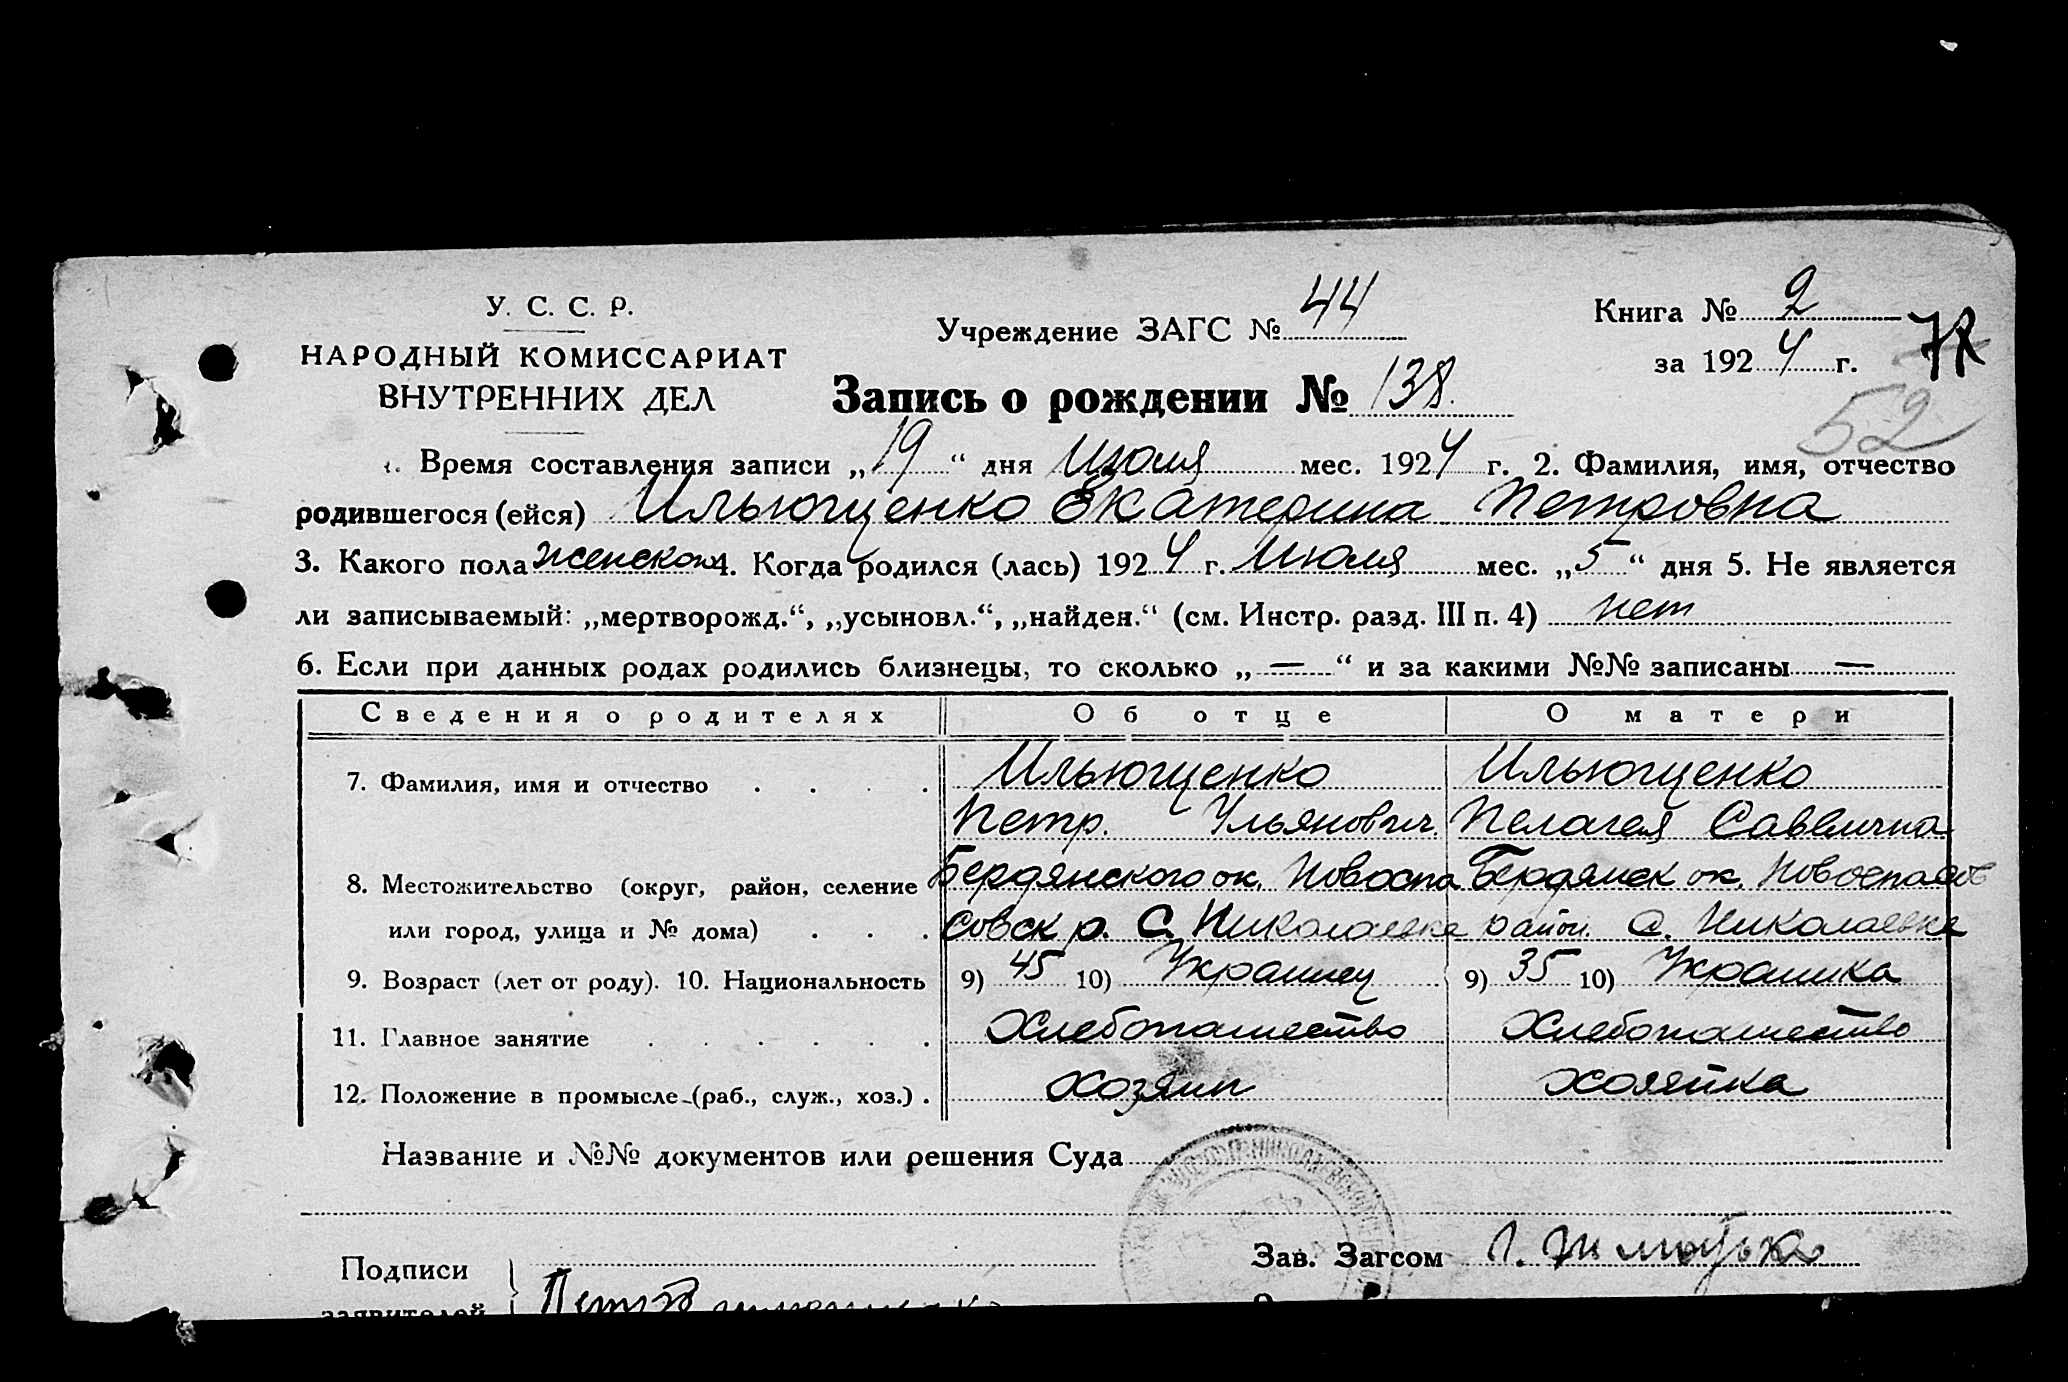 У. С. С. Р.
НАРОДНЫЙ КОМИССАРИАТ
ВНУТРЕННИХ ДЕЛ
Учреждение ЗАГС № 44
Книга № 2
за 1924 г.
52
Запись о рождении № 138.
1. Время составления записи „19“ дня Июля мес. 1924 г. 2. Фамилия, имя, отчество
родившегося (ейся) Ильющенко Екатерина Петровна
3. Какого пола женского 4. Когда родился (лась) 1924 г. Июля мес. „5“ дня 5. Не является
ли записываемый: „мертворожд.“, „усыновл.“, „найден.“ (см. Инстр. разд. III п. 4) нет
6. Если при данных родах родились близнецы, то сколько „—“ и за какими №№ записаны —
Сведения о родителях Об отце О матери
7. Фамилия, имя и отчество . . . . Ильющенко Ильющенко
Петр. Ульянович Пелагея Саввична
8. Местожительство (округ, район, селение Бердянского ок. Новоспа Бердянск ок. Новоспасов
или город, улица и № дома) . . . совск р. С. Николаевка район. С. Николаевка
9. Возраст (лет от роду). 10. Национальность 9) 45 10) Украинец 9) 35 10) Украинка
11. Главное занятие . . . . . . Хлебопашество Хлебопашество
12. Положение в промысле (раб., служ., хоз.) . Хозяин хозяйка
Название и №№ документов или решения Суда
Подписи
заявителей
Зав. Загсом